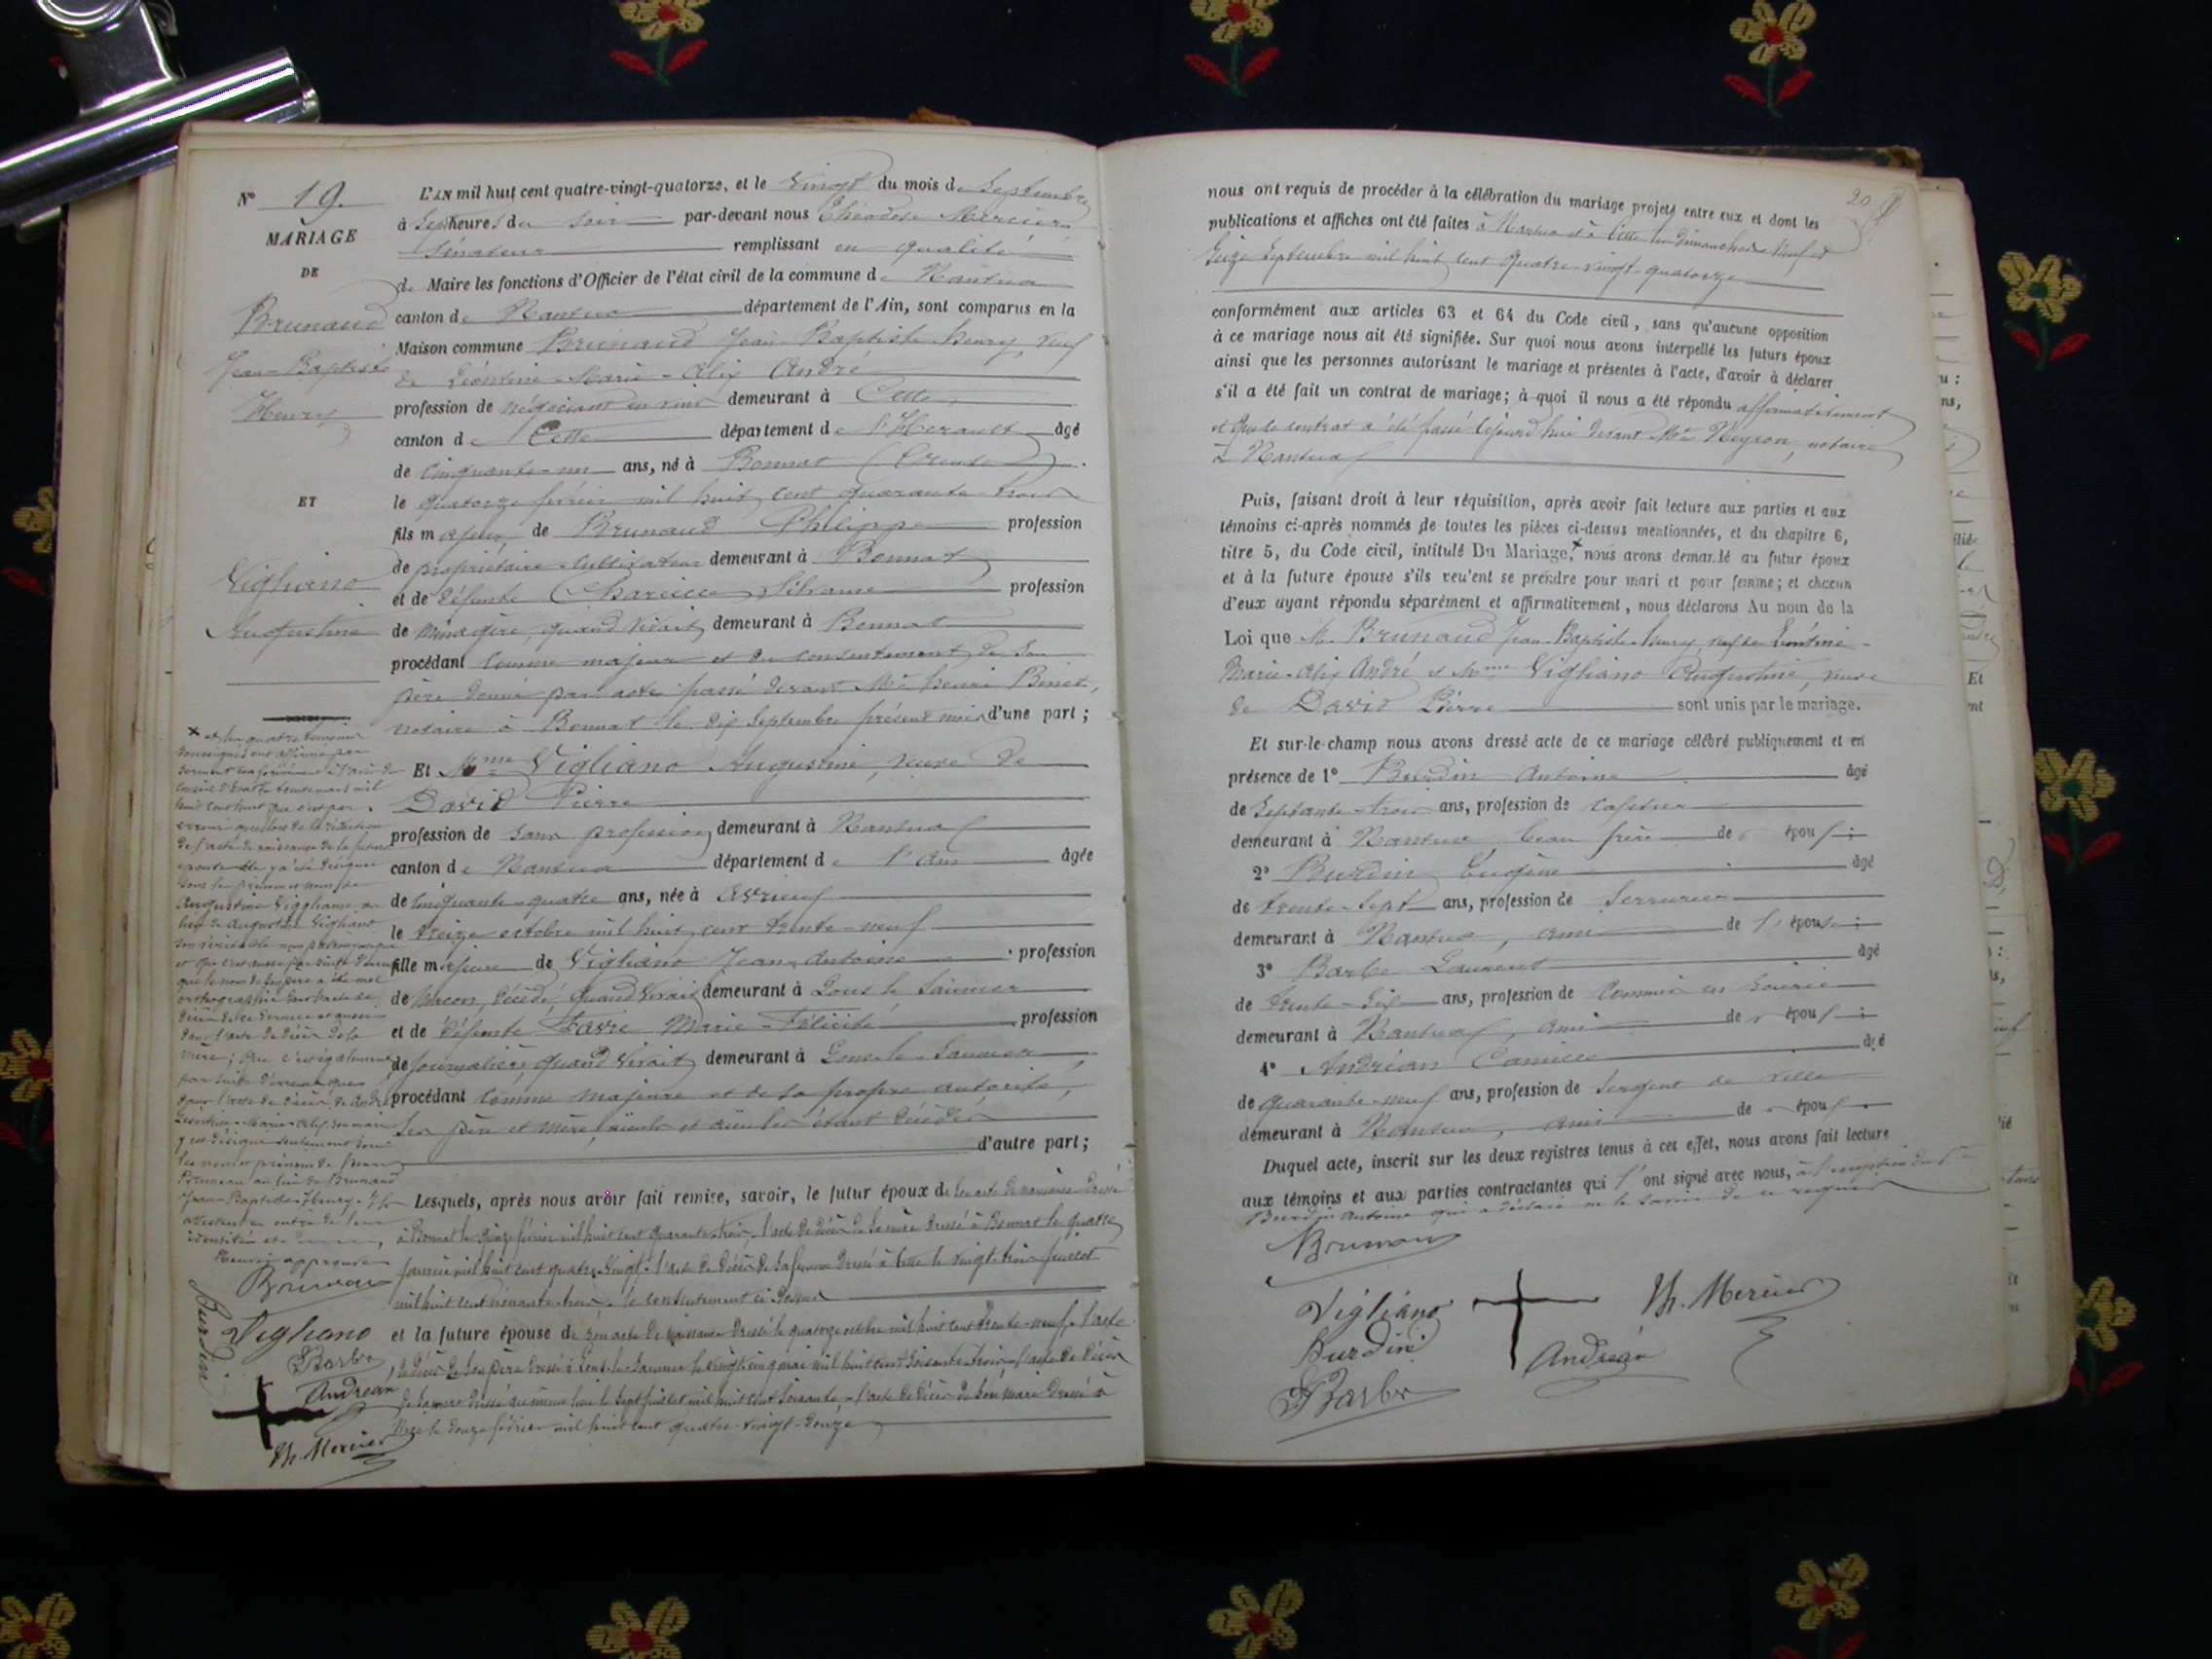 N° 19.
MARIAGE
DE
Brunaud
Jean-Baptiste
Henry
ET
Vigliano
Augustine
L'an mil huit cent quatre-vingt-quatorze, et le Vingt du mois de Septembre
à Sept heures du soir par-devant nous Théodore Mercier
Sénateur remplissant en qualité
de Maire les fonctions d'Officier de l'état civil de la commune de Nantua
canton de Nantua département de l'Ain, sont comparus en la
Maison commune Brunaud Jean-Baptiste Henry, veuf
de Léontine-Marie-Alix André
profession de négociant en vins demeurant à Cette
canton de Cette département de l'Hérault âgé
de cinquante-un ans, né à Bonnat (Creuse)
le quatorze février mil huit cent quarante-trois
fils majeur de Brunaud Philippe profession
de propriétaire-cultivateur demeurant à Bonnat
et de défunte Silvaine profession
de ménagère, quand vivait, demeurant à Bonnat
procédant comme majeur et du consentement de son
père donné par acte passé devant Me Henri Binet,
notaire à Bonnat le dix Septembre présent mois d'une part ;
Et Mme Vigliano Augustine, veuve de
David Pierre
profession de sans profession demeurant à Nantua
canton de Nantua département de l'Ain âgée
de cinquante-quatre ans, née à Avrieux
le treize octobre mil huit cent trente-neuf
fille majeure de Vigliano Jean-Antoine profession
de maçon, décédé, quand vivait demeurant à Lons le Saunier
et de défunte Favre Marie-Félicité profession
de journalière, quand vivait, demeurant à Lons-le-Saunier
procédant comme majeure et de sa propre autorité,
ses père et mère, aïeuls et aïeules étant décédés
d'autre part ;
Lesquels, après nous avoir fait remise, savoir, le futur époux de son acte de naissance dressé
à Bonnat le quinze février mil huit cent quarante-trois, l'acte de décès de sa mère dressé à Bonnat le quatre
janvier mil huit cent quatre-vingt, l'acte de décès de sa femme dressé à Cette le vingt-trois juillet
mil huit cent le consentement ci-dessus
et la future épouse de son acte de naissance dressé le quatorze octobre mil huit cent trente-neuf, l'acte
de décès de son père dressé à Lons-le-Saunier le vingt cinq mai mil huit cent soixante-trois, l'acte de décès
de sa mère dressé au même lieu le sept juillet mil huit cent soixante, l'acte de décès de son mari dressé à
le douze février mil huit cent quatre-vingt-douze
× et les quatre témoins
soussignés ont affirmé par
serment conformément à l'avis du
conseil d'état du trente mars mil
huit cent huit que c'est par
erreur que lors de la rédaction
de l'acte de naissance de la future
épouse elle y a été désignée
sous les prénoms nom de
Augustine Viggliame au
lieu de Augustine Vigliano
son véritable nom patronymique
et que c'est aussi par suite d'erreur
que le nom de son père a été mal
orthographié dans l'acte de
décès de ce dernier et aussi
dans l'acte de décès de sa
mère ; que c'est également
par suite d'erreur que
dans l'acte de décès de André
Léontine-Marie-Alix son mari
y est désigné seulement sous
les nom et prénom de Henri
Bruneau au lieu de Brunaud
Jean-Baptiste-Henry. Ils
attestent en outre de leur
identité
Renvoi approuvé
Brunaud
Burdin
Vigliano
Barbe
Andréan
Th. Mercier
20
nous ont requis de procéder à la célébration du mariage projeté entre eux et dont les
publications et affiches ont été faites à Nantua et à Cette les dimanches neuf et
Seize Septembre mil huit cent quatre-vingt-quatorze
conformément aux articles 63 et 64 du Code civil, sans qu'aucune opposition
à ce mariage nous ait été signifiée. Sur quoi nous avons interpellé les futurs époux
ainsi que les personnes autorisant le mariage et présentes à l'acte, d'avoir à déclarer
s'il a été fait un contrat de mariage ; à quoi il nous a été répondu affirmativement
et que le contrat a été passé cejourd'hui devant Me Neyron, notaire
à Nantua
Puis, faisant droit à leur réquisition, après avoir fait lecture aux parties et aux
témoins ci-après nommés de toutes les pièces ci-dessus mentionnées, et du chapitre 6,
titre 5, du Code civil, intitulé Du Mariage,× nous avons demandé au futur époux
et à la future épouse s'ils veulent se prendre pour mari et pour femme ; et chacun
d'eux ayant répondu séparément et affirmativement, nous déclarons Au nom de la
Loi que M. Brunaud Jean-Baptiste-Henry, veuf de Léontine-
Marie-Alix André et Mme Vigliano Augustine, veuve
de David Pierre sont unis par le mariage.
Et sur-le-champ nous avons dressé acte de ce mariage célébré publiquement et en
présence de 1° Burdin Antoine âgé
de Septante-trois ans, profession de cafetier
demeurant à Nantua, beau-frère de épou ;
2° Burdin Eugène âgé
de trente-sept ans, profession de Serrurier
demeurant à Nantua, ami de l'épouse ;
3° Barbe Laurent âgé
de trente-six ans, profession de commis en soierie
demeurant à Nantua, ami de épou ;
4° Andréan Camille âgé
de quarante-neuf ans, profession de Sergent de ville
demeurant à Nantua, ami de épou
Duquel acte, inscrit sur les deux registres tenus à cet effet, nous avons fait lecture
aux témoins et aux parties contractantes qui l'ont signé avec nous, à l'exception du
Burdin Antoine qui a déclaré ne le savoir de ce requis
Brunaud
Vigliano
Th. Mercier
Burdin
Andréan
Barbe